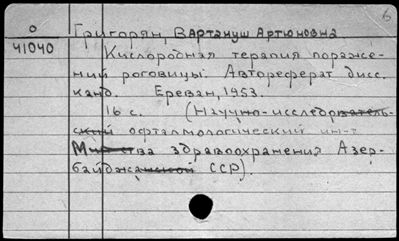 6
О Григорян, Вартануш Артюновна.
41040 Кислородная терапия пораже-
ний роговицы. Автореферат дисс.
канд. Ереван, 1953.
16 с. (Научно-исследователь-
ский офталмологический ин-т
Мин-ва здравоохранения Азер-
байджанской ССР).